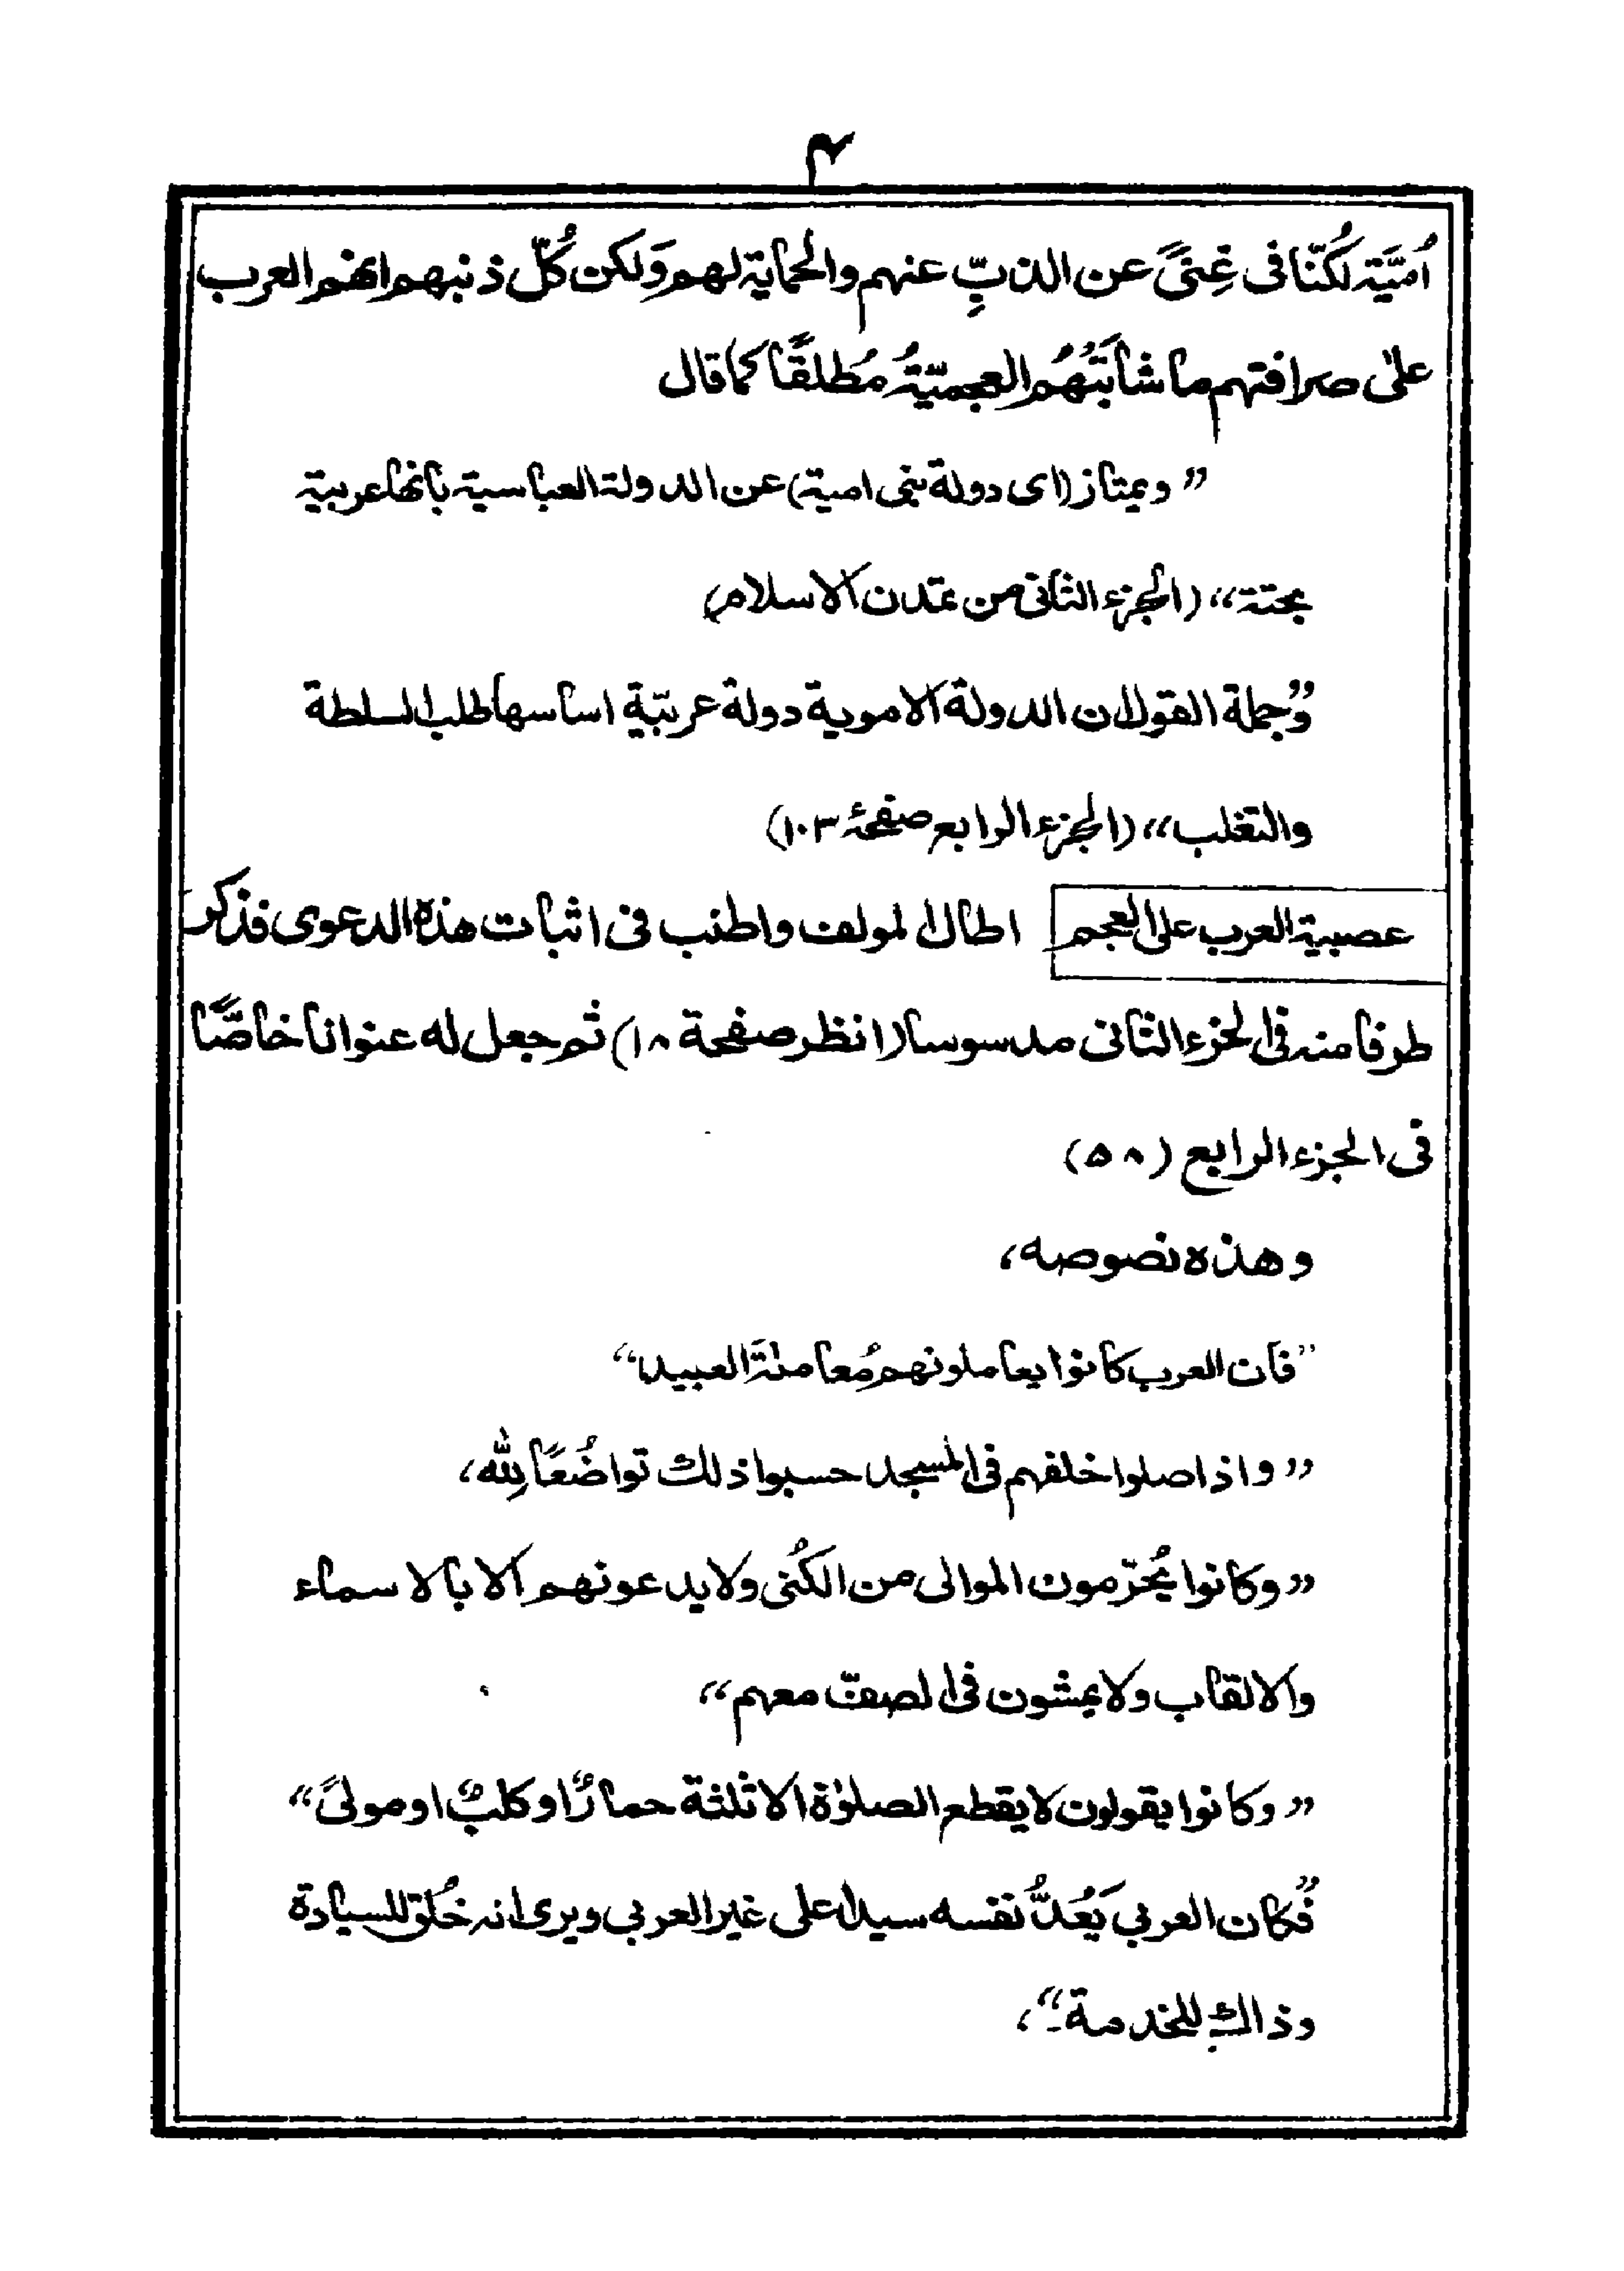 ۳
اُمَيَّة لكُنّا فى غِنىً عن الذبِّ عنهم والحماية لهم وَلكن كُلّ ذنبهم انهم العرب
على صرافتهم ما شابَتْهُم العجميّةُ مُطلقًا كما قال
”ويمتاز (اى دولة بنى امية) عن الدولة العباسية بانها عربية
بحتة“ (الجزء الثانى من تمدن الاسلام)
”وجملة القول ان الدولة الاموية دولة عربيّة اساسها طلب السلطة
والتغلب“ (الجزء الرابع صفحة ۱۰۳)
عصبية العرب على العجم اطال المولف واطنب فى اثبات هذه الدعوى فذكر
طرفا منه فى الجزء الثانى مدسوسا (انظر صفحة ۱۸) ثم جعل له عنوانا خاصًّا
فى الجزء الرابع (۵۸)
وهذه نصوصه،
”فان العرب كانوا يعاملونهم مُعاملةَ العبيد“
”واذا صلوا خلفهم فى المسجد حسبوا ذلك تواضُعًا لِلّٰه،
”وكانوا يُحرّمون الموالى من الكُنى ولا يدعونهم الا بالاسماء
والالقاب ولا يمشون فى الصفّ معهم“
”وكانوا يقولون لا يقطع الصلوٰة الا ثلثة حمارٌ او كلبٌ او مولىً“
”فكان العربي يَعُدُّ نفسه سيدا على غير العربي ويرى انه خُلق للسيادة
وذاك للخدمة“،